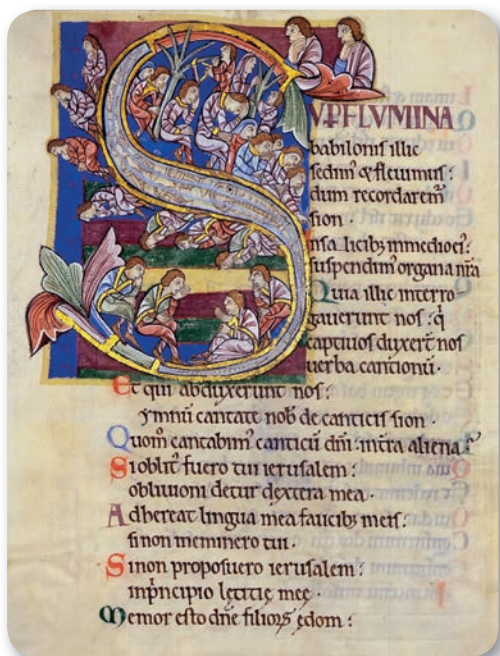 SVP FLVMINA
babilonis illic
sedim᾽ & fleuimus:
dum recordarem̃
sion.
Insa licib; in medio ei᾽:
suspendim᾽ organa nr̃a
Quia illic interro-
gauerunt nos: q̇
captiuos duxer̃t nos
uerba cantionũ.
Et qui abduxerunt nos:
ymnũ cantate nob̃ de canticis sion.
Quom̃ cantabim᾽ canticũ dñi. intra aliena?
Si oblit᾽ fuero tui ierusalem:
obliuioni detur dextera mea.
Adhereat lingua mea faucib; meis:
si non meminero tui.
Si non proposuero ierusalem:
inp̃ncipio letitię męę.
Memor esto dñe filioꝝ ędom: